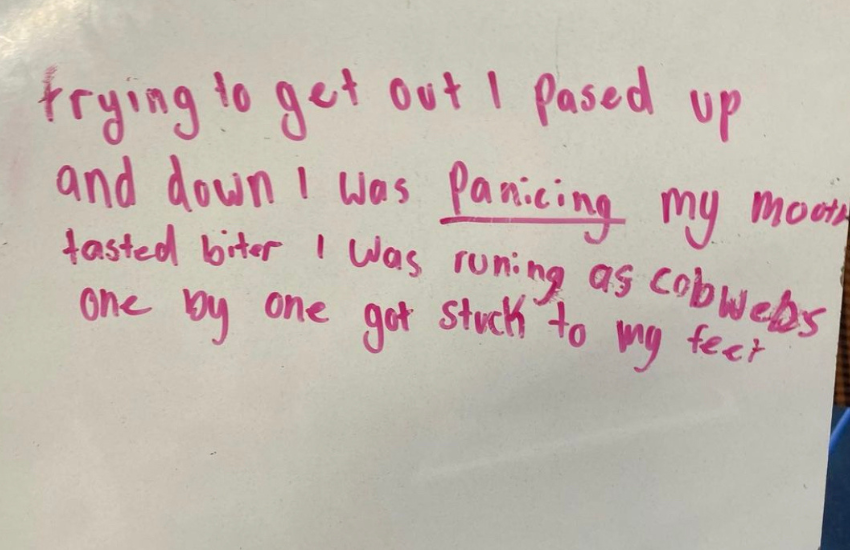 trying to get out I pased up
and down I was panicing my mooth
tasted biter I was runing as cobwebs
one by one got stuck to my feet